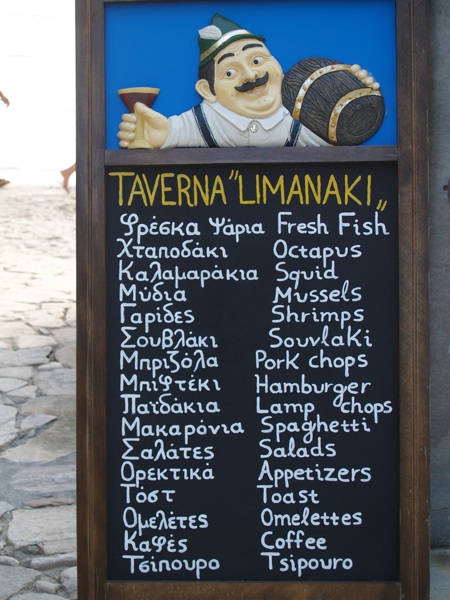 TAVERNA "LIMANAKI„
Φρέσκα Ψάρια Fresh Fish
Χταποδάκι Octapus
Καλαμαράκια Squid
Μύδια Mussels
Γαρίδες Shrimps
Σουβλάκι Souvlaki
Μπριζόλα Pork chops
Μπιφτέκι Hamburger
Παϊδάκια Lamp chops
Μακαρόνια Spaghetti
Σαλάτες Salads
Ορεκτικά Appetizers
Τόστ Toast
Ομελέτες Omelettes
Καφές Coffee
Τσίπουρο Tsipouro